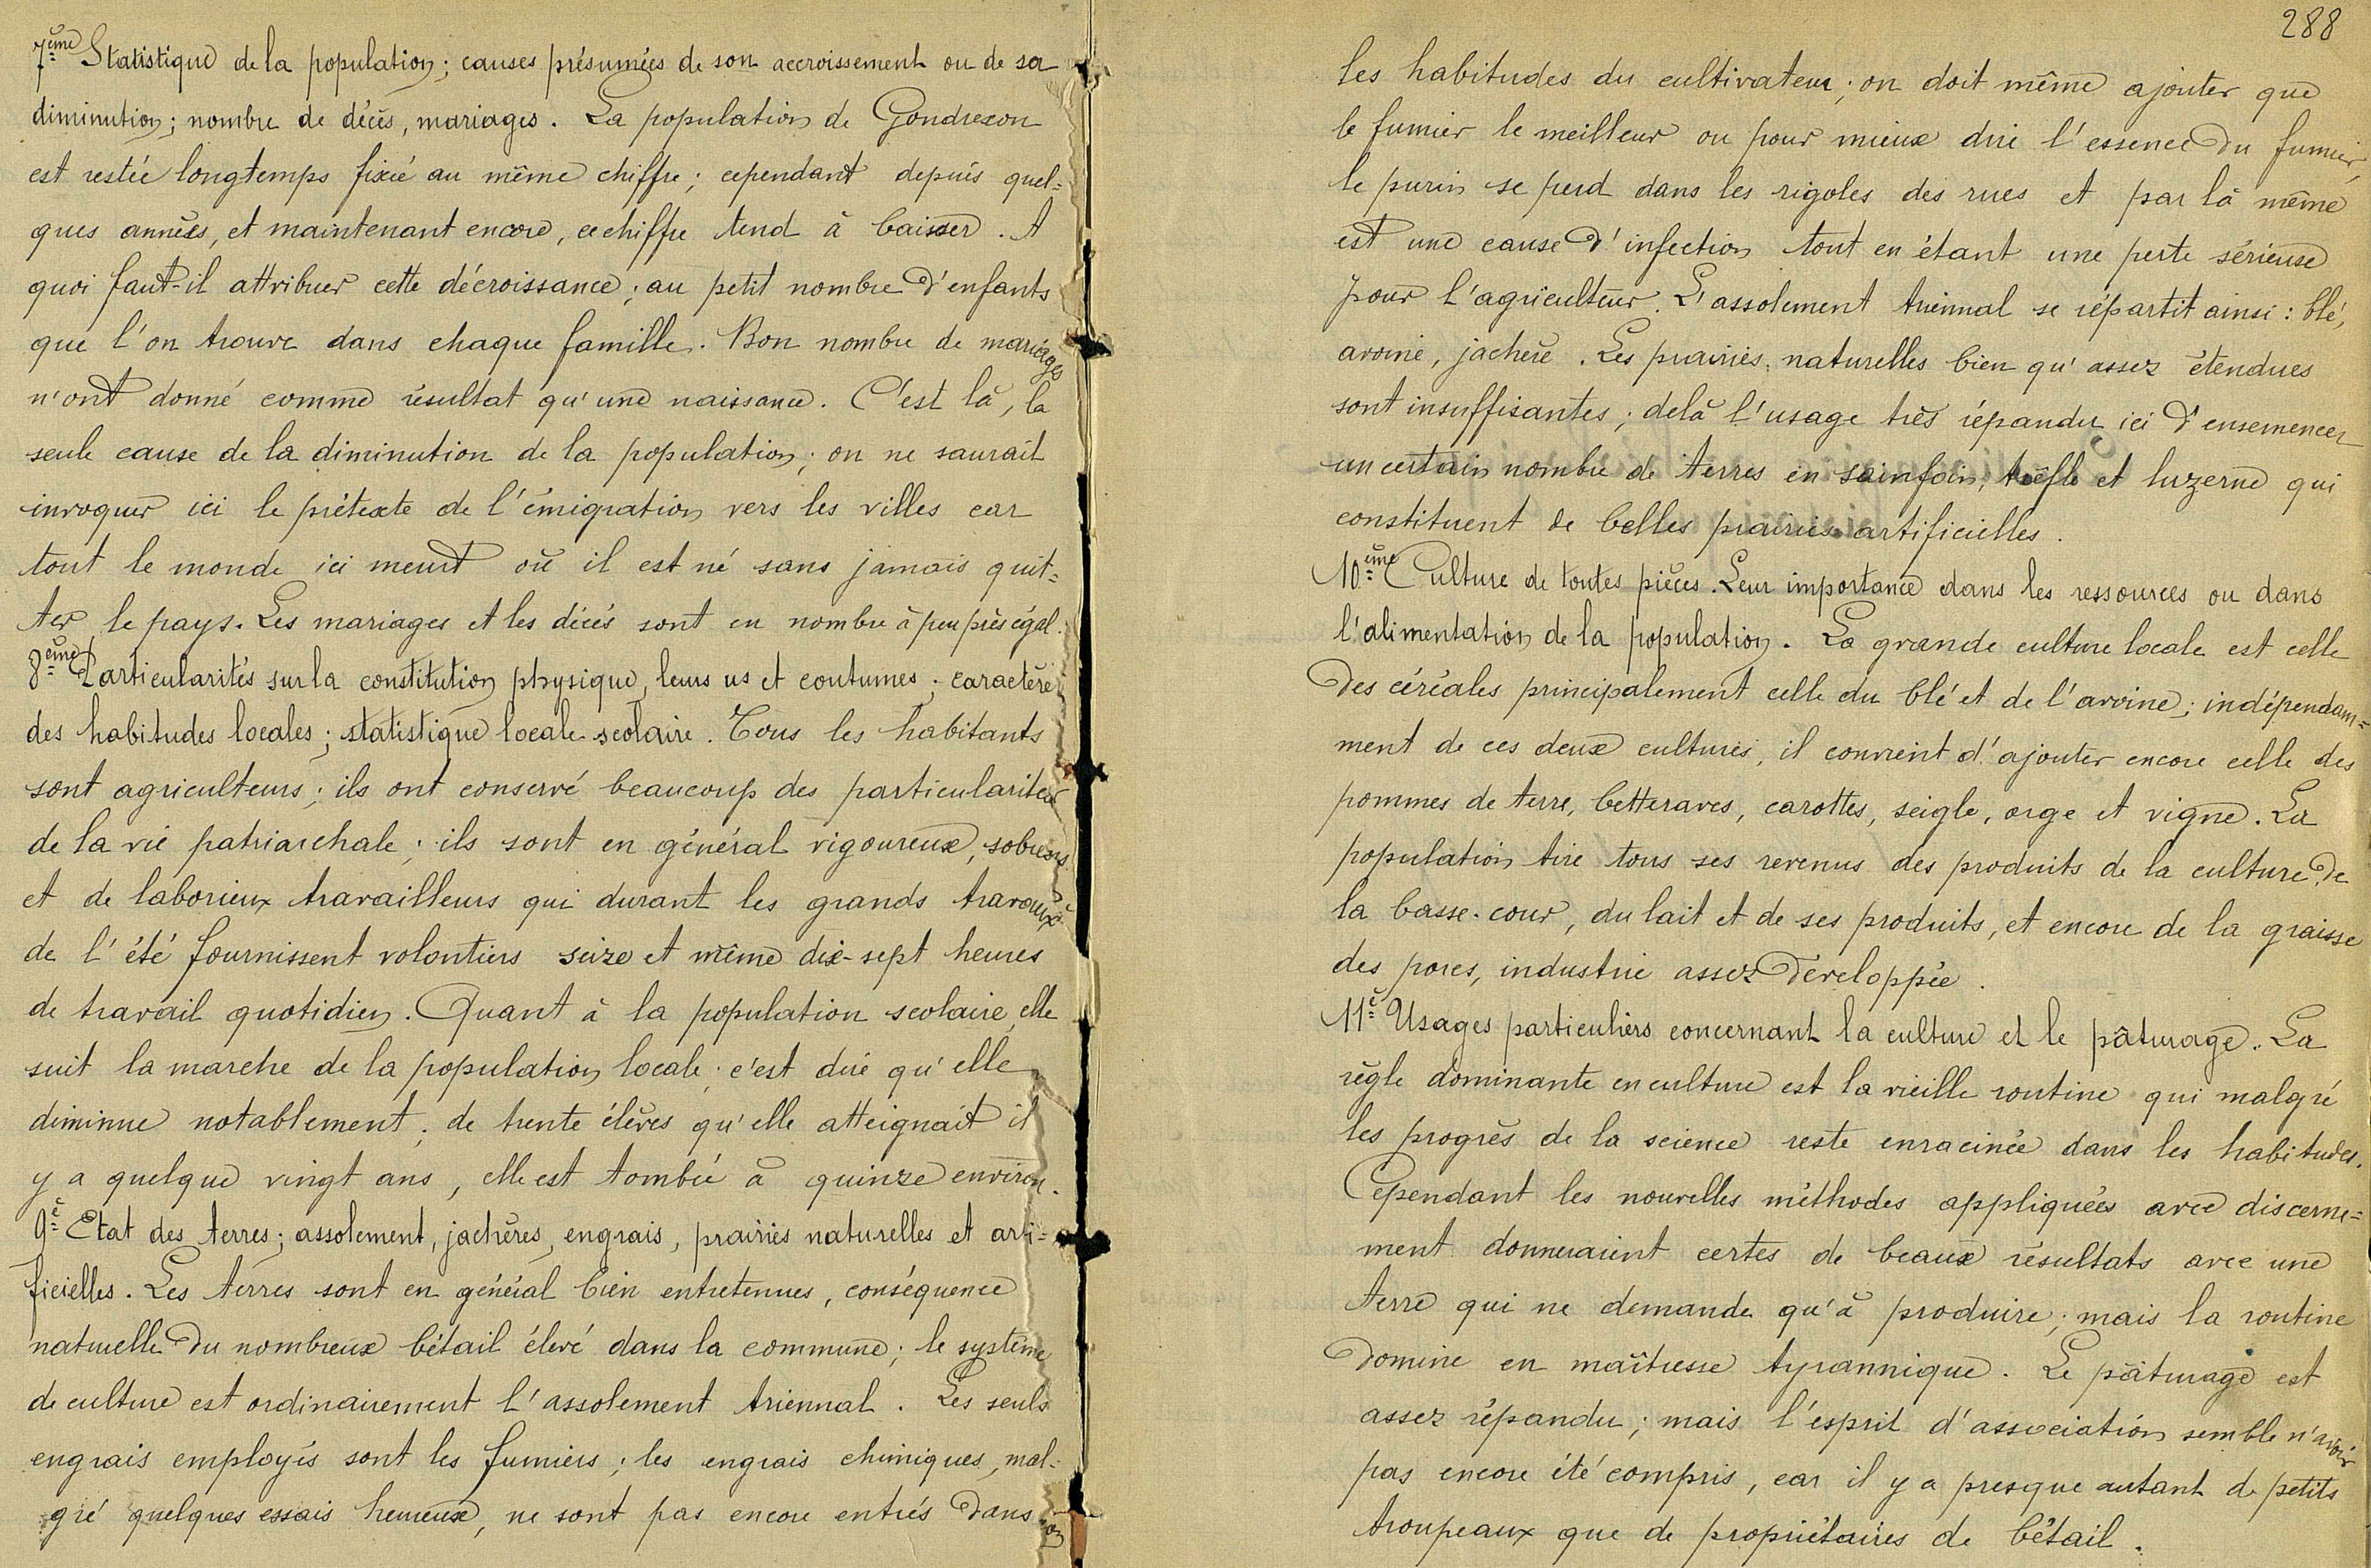 7ème Statistique de la population; causes présumées de son accroissement ou de sa
diminution; nombre de décès, mariages. La population de Gondrexon
est restée longtemps fixée au même chiffre; cependant depuis quel=
ques années, et maintenant encore, ce chiffre tend à baisser. A
quoi faut-il attribuer cette décroissance; au petit nombre d'enfants
que l'on trouve dans chaque famille. Bon nombre de mariages
n'ont donné comme résultat qu'une naissance. C'est là, la
seule cause de la diminution de la population; on ne saurait
invoquer ici le prétexte de l'émigration vers les villes car
tout le monde ici meurt où il est né sans jamais quit=
ter le pays. Les mariages et les décès sont en nombre à peu près égal.
8ème Particularités sur la constitution physique, leurs us et coutumes; caractère
des habitudes locales; statistique locale scolaire. Tous les habitants
sont agriculteurs; ils ont conservé beaucoup des particularités
de la vie patriarchale; ils sont en général vigoureux, sobres
et de laborieux travailleurs qui durant les grands travaux
de l'été fournissent volontiers seize et même dix-sept heures
de travail quotidien. Quant à la population scolaire, elle
suit la marche de la population locale; c'est dire qu'elle
diminue notablement; de trente élèves qu'elle atteignait il
y a quelque vingt ans, elle est tombée à quinze environ.
9è Etat des terres; assolement, jachères, engrais, prairies naturelles et arti=
ficielles. Les terres sont en général bien entretenues, conséquence
naturelle du nombreux bétail élevé dans la commune; le système
de culture est ordinairement l'assolement triennal. Les seuls
engrais employés sont les fumiers; les engrais chimiques, mal=
gré quelques essais heureux, ne sont pas encore entrés dans
288
les habitudes du cultivateur; on doit même ajouter que
le fumier le meilleur ou pour mieux dire l'essence du fumier,
le purin se perd dans les rigoles des rues et par là même
est une cause d'infection tout en étant une perte sérieuse
pour l'agriculteur. L'assolement triennal se répartit ainsi: blé,
avoine, jachère. Les prairies naturelles bien qu'assez étendues
sont insuffisantes; delà l'usage très répandu ici d'ensemencer
un certain nombre de terres en sainfoin, trèfle et luzerne qui
constituent de belles prairies artificielles.
10ème Culture de toutes pièces. Leur importance dans les ressources ou dans
l'alimentation de la population. La grande culture locale est celle
des céréales principalement celle du blé et de l'avoine; indépendam=
ment de ces deux cultures, il convient d'ajouter encore celle des
pommes de terre, betteraves, carottes, seigle, orge et vigne. La
population tire tous ses revenus des produits de la culture, de
la basse-cour, du lait et de ses produits, et encore de la graisse
des porcs, industrie assez développée.
11è Usages particuliers concernant la culture et le pâturage. La
règle dominante en culture est la vieille routine qui malgré
les progrès de la science reste enracinée dans les habitudes.
Cependant les nouvelles méthodes appliquées avec discerne=
ment donneraient certes de beaux résultats avec une
terre qui ne demande qu'à produire; mais la routine
domine en maîtresse tyrannique. Le pâturage est
assez répandu; mais l'esprit d'association semble n'avoir
pas encore été compris, car il y a presque autant de petits
troupeaux que de propriétaires de bétail.